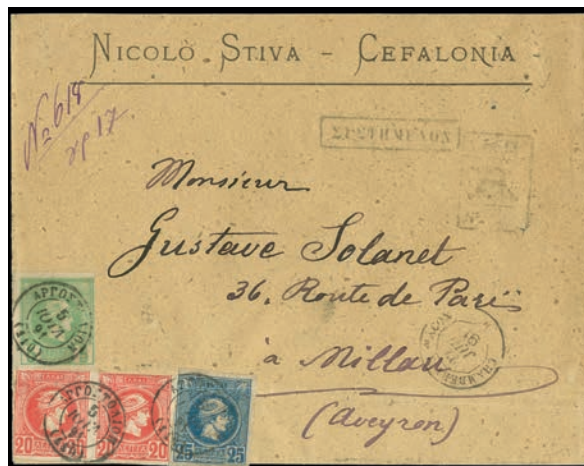 NICOLÒ STIVA - CEFALONIA -
No 618
gr 17
ΣΥΣΤΗΜΕΝΟΝ
R
Monsieur
Gustave Solanet
36, Route de Paris
à Millau
(Aveyron)
ΑΡΓΟΣΤΟΛΙΟΝ
5
ΙΟΥΛ
ΑΡΓΟΣΤΟΛΙΟΝ
5
ΙΟΥΛ
20 20 25 25